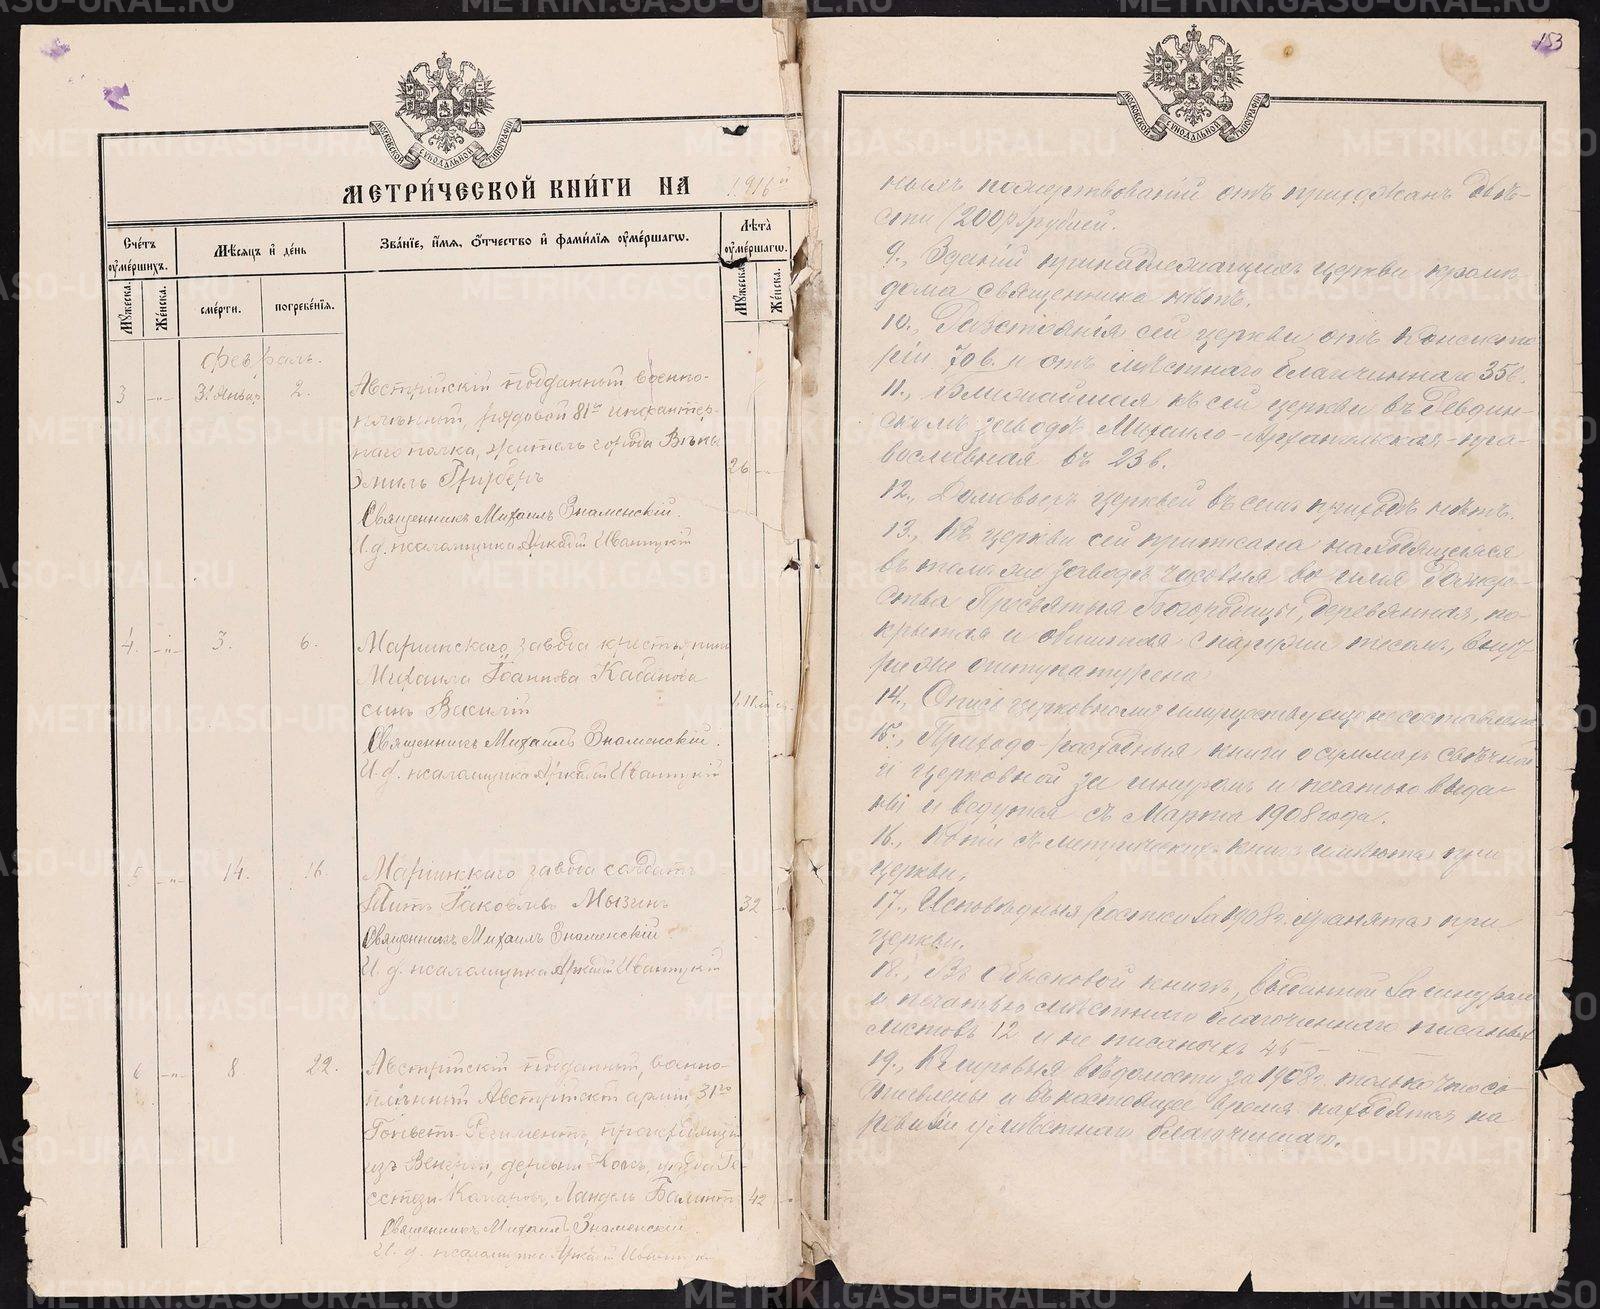 МОСКОВСКОЙ СѴНОДАЛЬНОЙ ТИПОГРАФІИ
МЕТРИ́ЧЕСКОЙ КНИ́ГИ НА 1916й
Сче́тъ оумéршихъ.
Мꙋ́жеска.
Же́нска.
Мѣ́сяцъ и́ де́нь
сме́рти.
погребе́нія.
Зва́нїе, и҆́мя, ѻ҆́тчество и҆ фами́лїя оу҆ме́ршагѡ.
Лѣ́та оу҆ме́ршагѡ.
Мꙋ́жеска.
Же́нска.
Февраль.
3 -"- 31 Январ. 2. Австрійскій подданный военно-
плѣнный, рядовой 81го инфантер-
наго полка, житель города Вѣны
Эмиль 26
Священникъ Михаилъ Знаменскій.
И. д. псаломщика Аркадій Иваницкій
4. -"- 3. 6. Маріинскаго завода крестьянина
Михаила Іоаннова Кабанова
сынъ Василій
Священникъ Михаилъ Знаменскій.
И. д. псаломщика Аркадій Иваницкій
5 -"- 14. 16. Маріинскаго завода солдатъ
Титъ Іаковлевъ Мызинъ 32
Священникъ Михаилъ Знаменскій.
И. д. псаломщика Аркадій Иваницкій
6 -"- 8 22. Австрійскій подданный, военно-
плѣнный Австрійской арміи 31го
Гонветъ-Региментъ,
изъ Венгріи, деревни
Баминтъ 42
Священникъ Михаилъ Знаменскій.
И. д. псаломщика Аркадій
153
МОСКОВСКОЙ СѴНОДАЛЬНОЙ ТИПОГРАФІИ
ныхъ пожертвованій отъ прихожанъ двѣ-
сти (200р.) рублей.
9., Зданій принадлежащихъ церкви кромѣ
дома священника нѣтъ.
10., Разстоянія сей церкви отъ Консисто
ріи 70 в. и отъ мѣстнаго благочиннаго 35 в.
11., Ближайшая къ сей церкви въ Ревдин-
скомъ заводѣ Михаило-Архангельская-пра-
вославная въ 23 в.
12., Домовыхъ церквей въ семъ приходѣ нѣтъ.
13., Къ церкви сей приписана находящаяся
въ томъ же заводѣ часовня во имя Рождe-
ства Пресвятыя Богородицы, деревянная, по-
крытая и обшитая снаружи тесомъ, внут-
ри же оштукатурена
14., Опись церковному имуществу еще не составлена.
15., Приходо-расходныя книги о суммахъ свѣчной
и церковной за шнуромъ и печатью выда-
ны и ведутся съ Марта 1908 года.
16., Копіи съ метрическихъ книгъ имѣются при
церкви.
17., Исповѣдныя росписи за 1908 г. хранятся при
церкви.
18., Въ обыскной книгѣ, выданной за шнуромъ
и печатью мѣстнаго благочиннаго писаныхъ
листовъ 12 и не писаныхъ 45
19., Клировыя вѣдомости за 1908 г. только что со-
ставлены и въ настоящее время находятся на
ревизіи у мѣстнаго благочиннаго.
METRIKI.GASO-URAL.RU